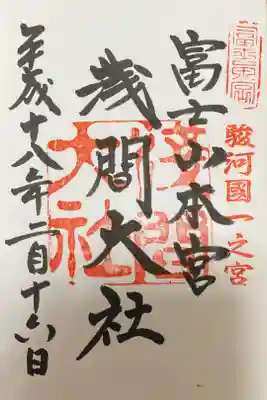 駿河國一之宮
富士山本宮
浅間大社
浅間大社
平成十八年二月十六日